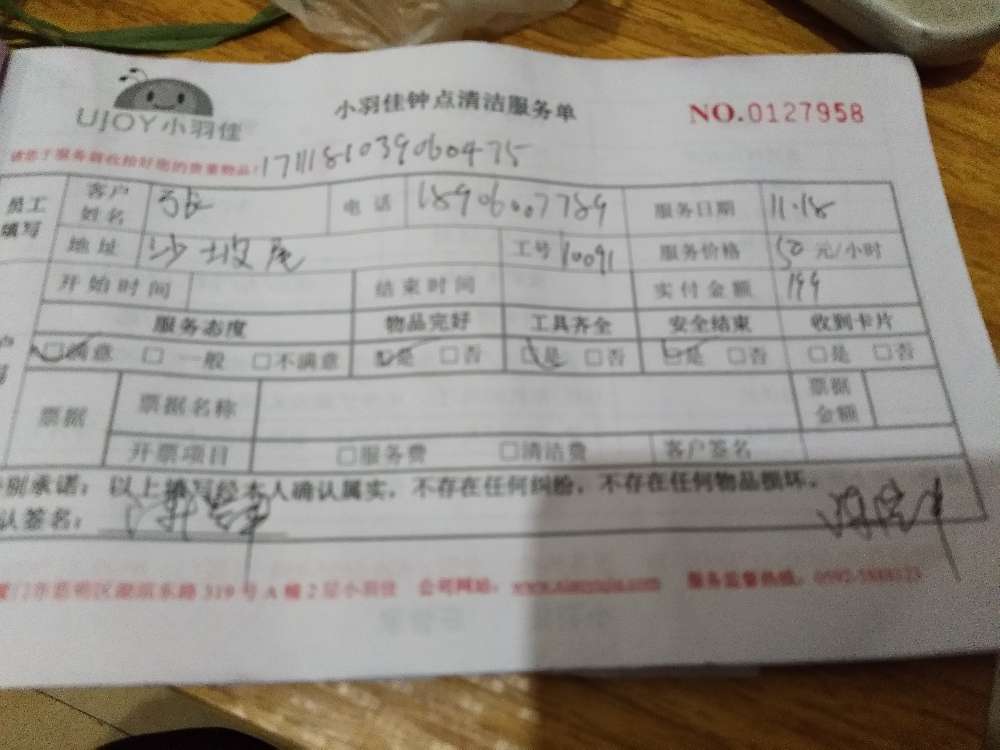 UJOY小羽佳
小羽佳钟点清洁服务单
NO.0127958
请您于服务前收拾好您的贵重物品! 1711181039060475
员工填写 客户姓名 电话 18906007789 服务日期 11.18
地址 沙坡尾 工号 10091 服务价格 50 元/小时
开始时间 结束时间 实付金额 199
服务态度 物品完好 工具齐全 安全结束 收到卡片
☑满意 □一般 □不满意 ☑是 □否 ☑是 □否 ☑是 □否 □是 □否
票据 票据名称 票据金额
开票项目 □服务费 □清洁费 客户签名
别承诺：以上填写经本人确认属实，不存在任何纠纷，不存在任何物品损坏。
认签名：
门市思明区湖滨东路 319 号 A 幢 2 层小羽佳 公司网站： 服务监督热线：